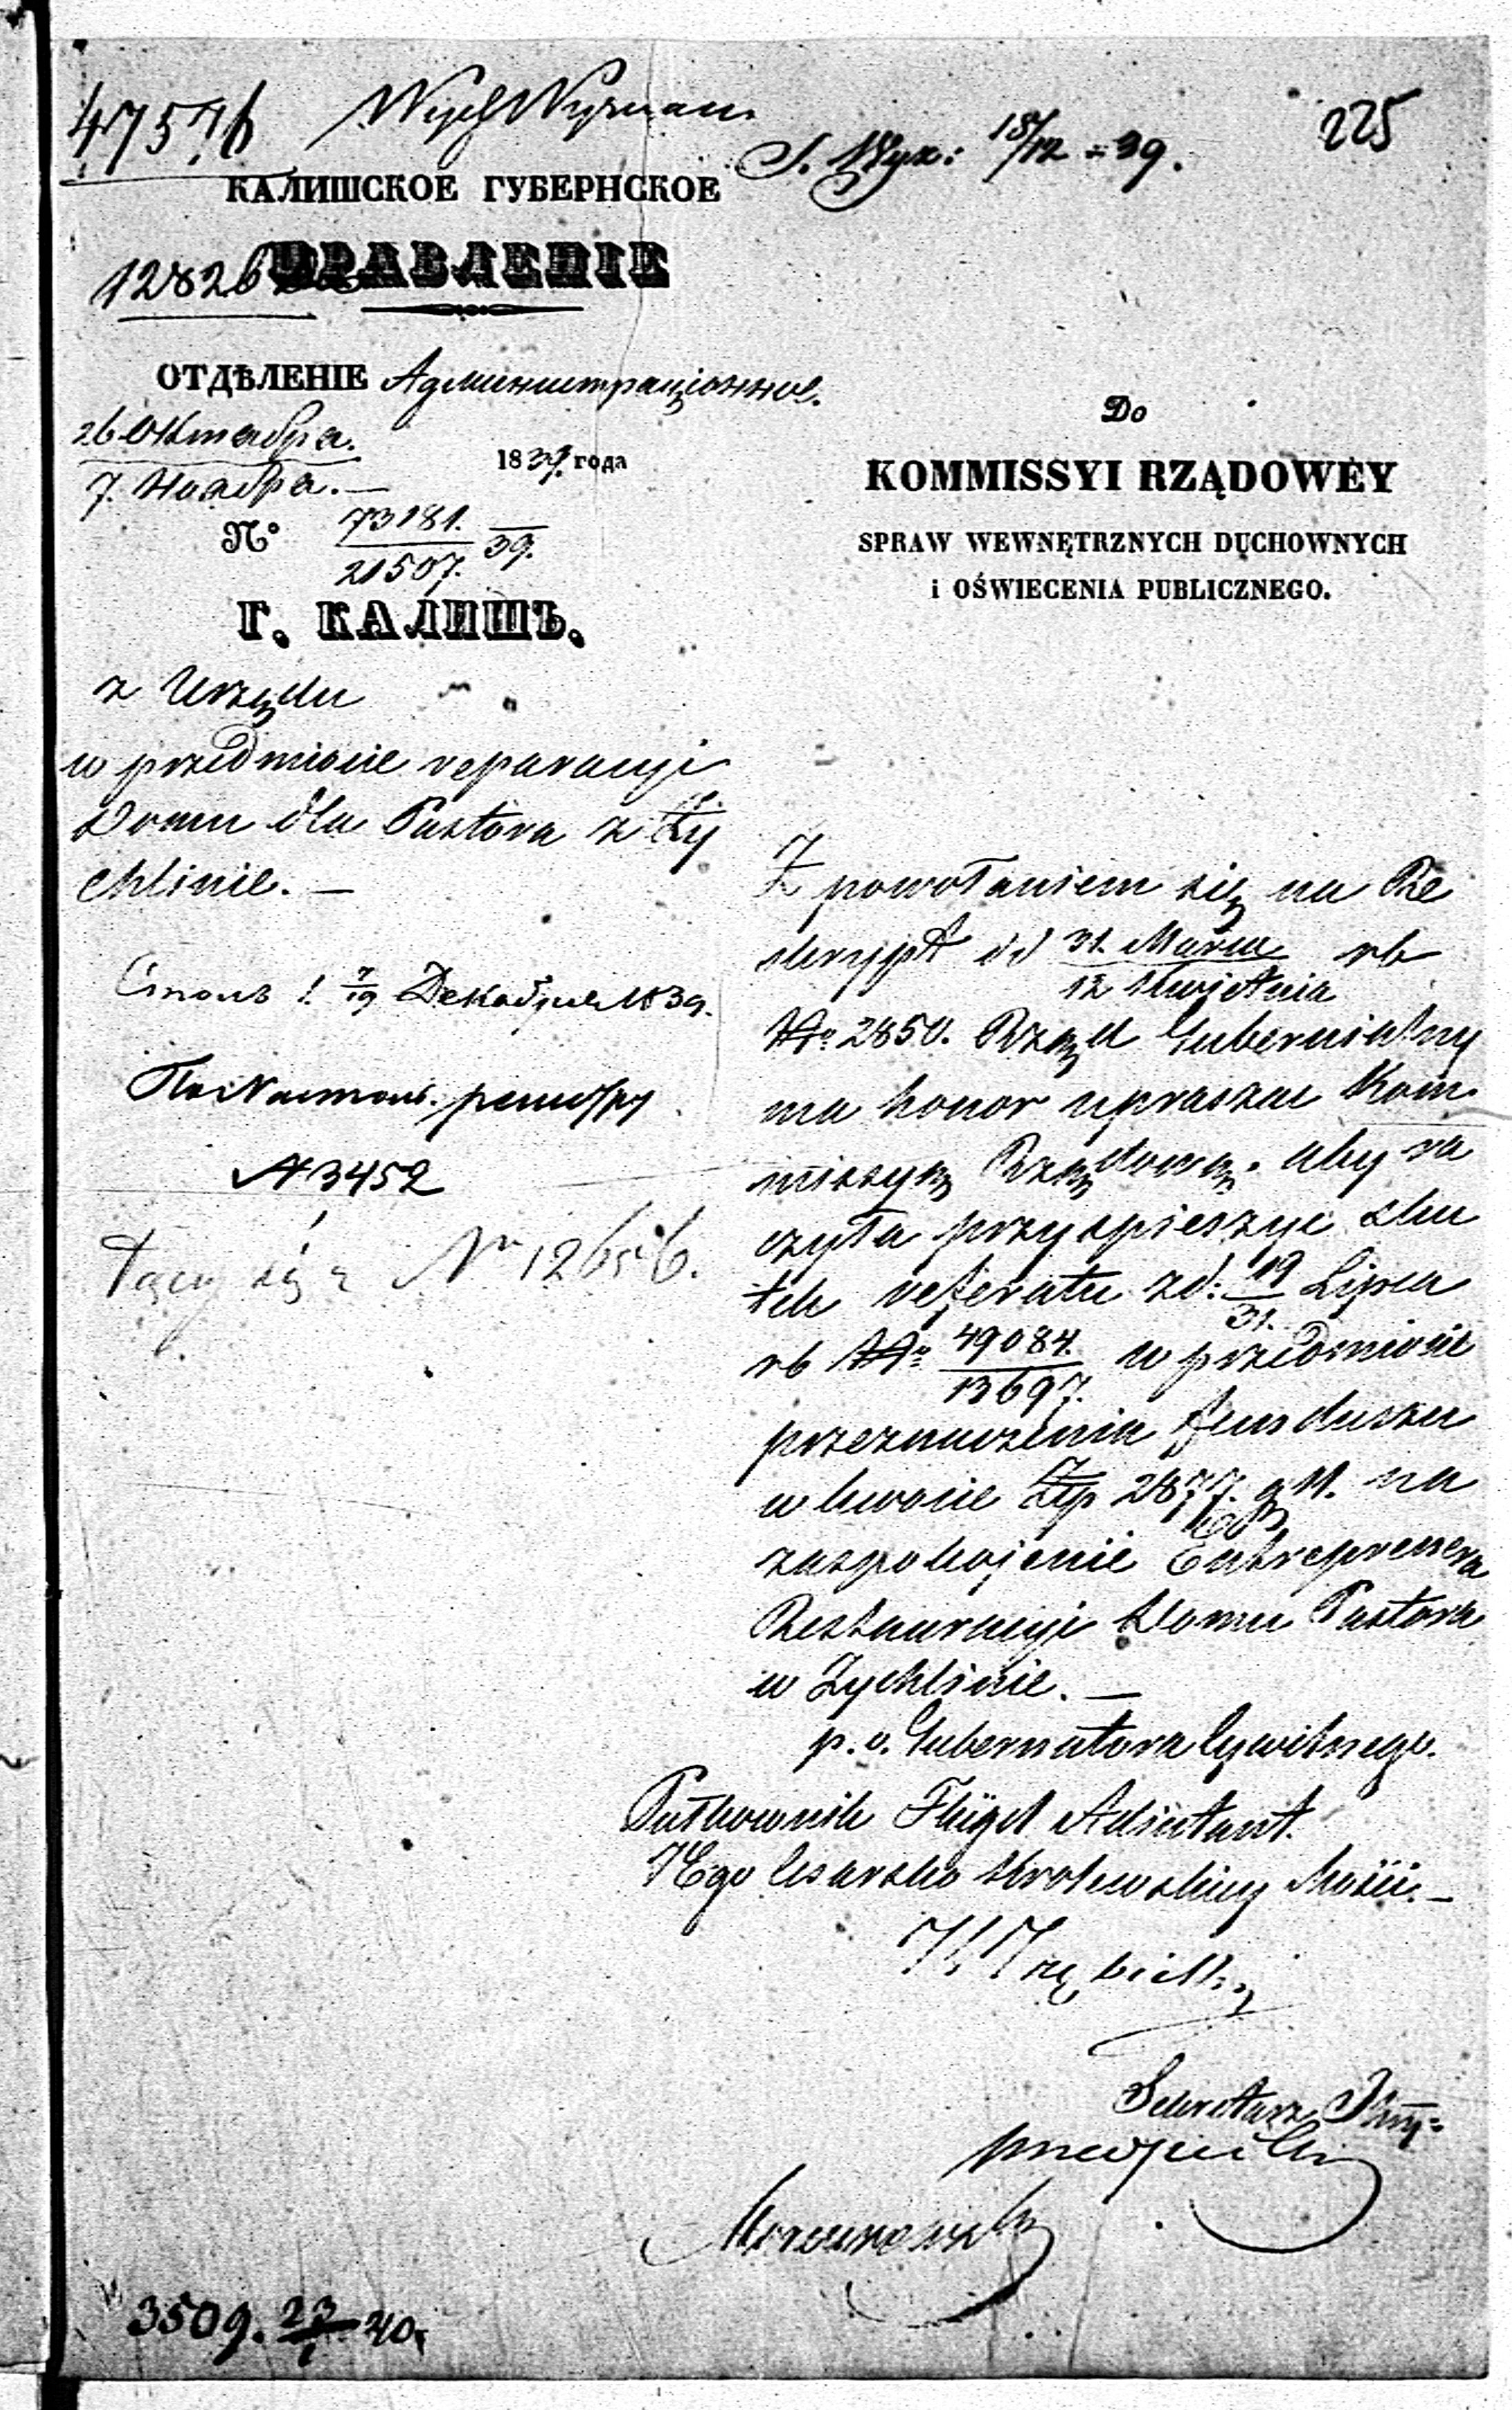 47576
225
S. Wyz: 18/12 = 39.
КАЛИШСКОЕ ГУБЕРНСКОЕ
ПРАВЛЕНІЕ
12826
ОТДѢЛЕНІЕ Администраціонное.
26 Октября.
7. Ноября.—
1839 года
№ 73181. / 21507. 39.
Г. КАЛИШЪ.
z Urzędu
w przedmiocie reparacyi
Domu dla Pastora z Ży
chlinie. —
Столъ 1. 7/19 Декабря 1839.
По Настол. реестру
N 3452
Łączy się z Nr 12656.
Do
KOMMISSYI RZĄDOWEY
SPRAW WEWNĘTRZNYCH DUCHOWNYCH
i OŚWIECENIA PUBLICZNEGO.
Z powołaniem się na Re
skrypt dd 31. Marca / 12 Kwietnia rb
No 2850. Rząd Gubernialny
ma honor upraszac Kom
missyą Rządową. aby ra
czyła przyspieszyc sku
tek referatu zd: 19/31. Lipca
rb No 49084. / 13697. w przedmiocie
przeznaczenia funduszu
w kwocie Złp 2877. g 11. na
zaspokojenie Entreprenera
Restauracyi Domu Pastora
w Zychlinie. —
p. o. Gubernatora Cywilnego.
Pułkownik Fligel Adiutant.
JEgo Cesarsko Krolewskiey Mości. —
Sekretarz
3509. 23/1 40.